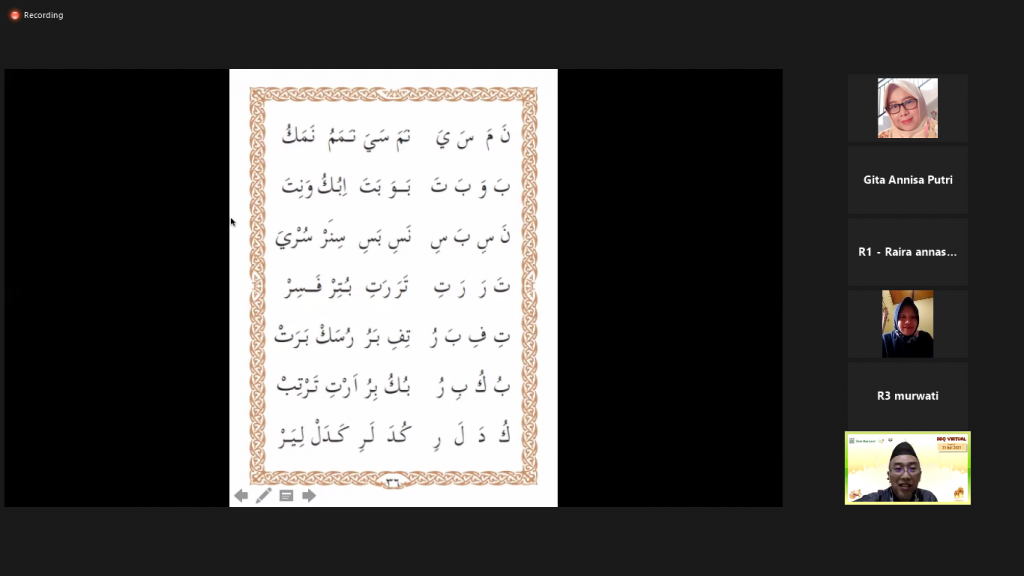 Recording
نَ مَ سَ يَ تَمَ سَيَ تَمَمُ نَمَكُ
بَ وَ بَ تَ بَـوَ بَتَ اِبُكُ وَنِتَ
نَ سِ بَ سِ نَسِ بَسِ سِنَرْ سُرْيَ
تَ رَ رَ تِ تَرَ رَتِ بُتِرْ فَـسِرْ
تِ فِ بَ رُ تِفِ بَرُ رُسَكْ بَرَتْ
بُ كُ بِ رُ بُكُ بِرُ اَرْتِ تَرْتِبْ
كُ دَ لَ رِ كُدَ لَرِ كَدَلْ لِيَرْ
٣٦
Gita Annisa Putri
R1 - Raira annas...
R3 murwati
BBQ VIRTUAL